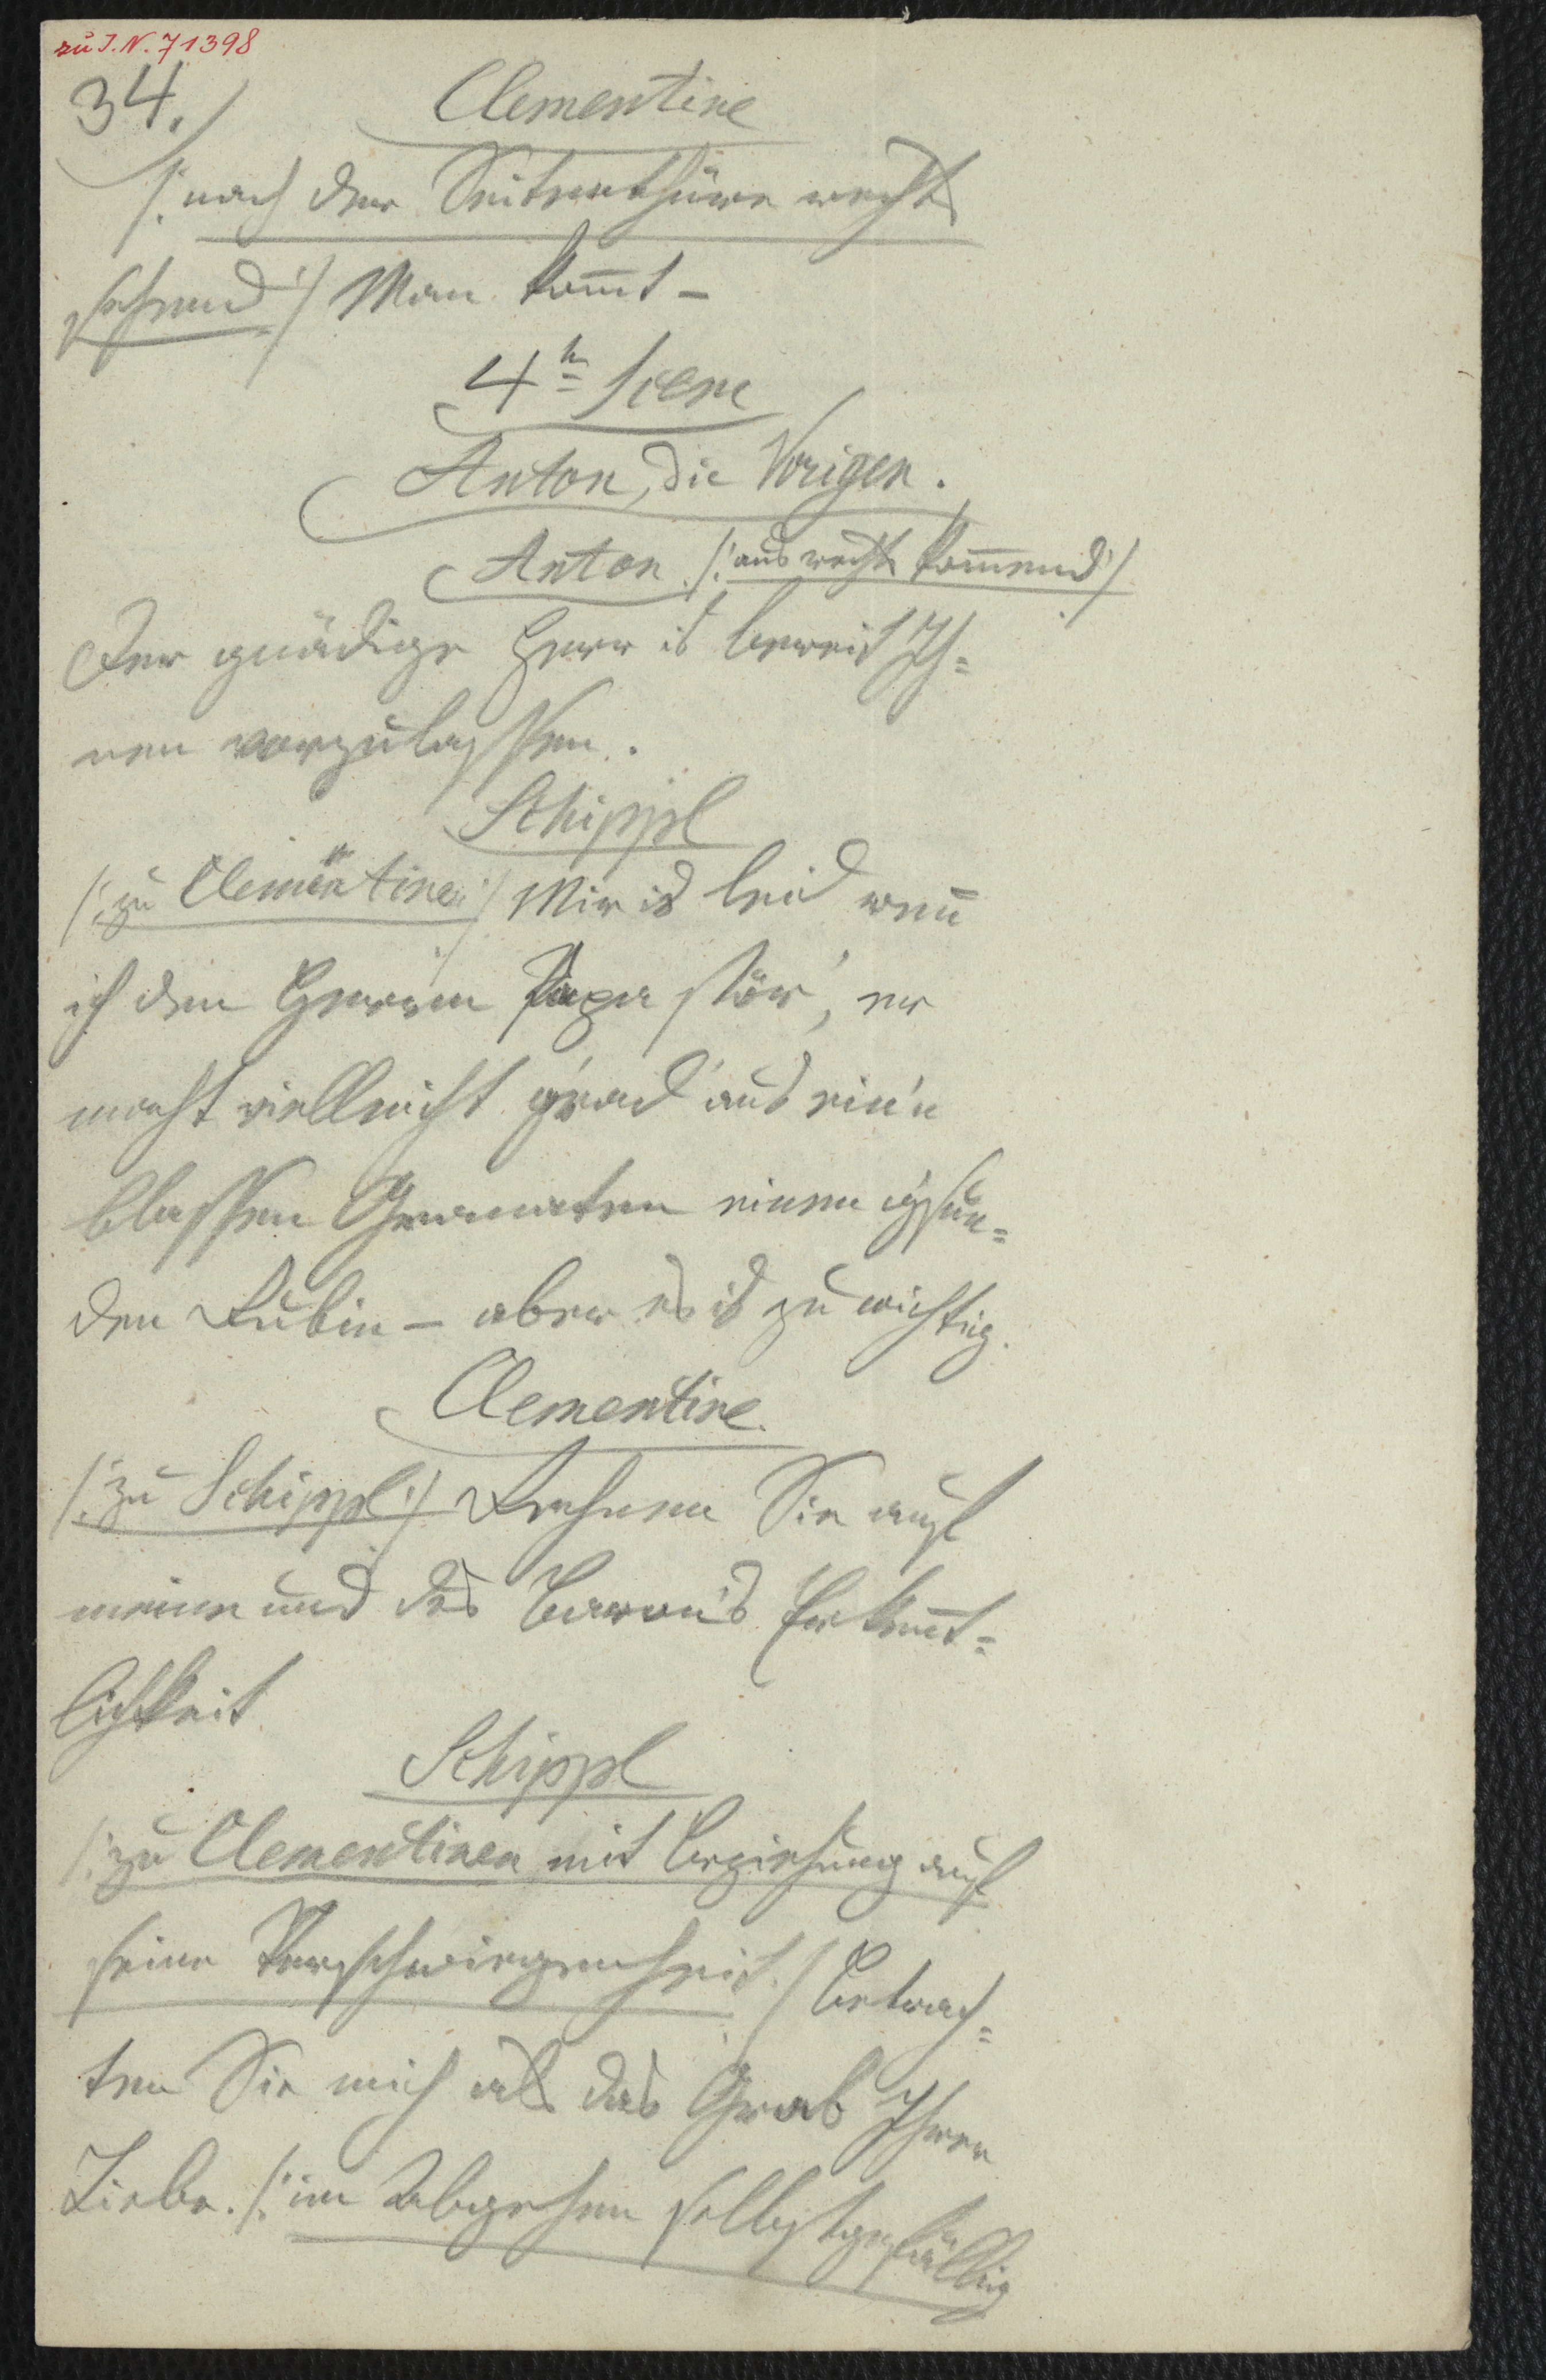 zu I.N. 71398
34.)
Clementine
/: nach der Seitenthüre rechts
sehend :/ Man kom̅t –
4te Scene
Anton, die Vorigen.
Anton /: aus rechts kom̅end :/
Der gnädige Herr is bereit Ih=
nen vorzulassen.
Schippl
/: zu Clementine :/ Mir is leid wen̅
ich den Herren Papa stör', er
macht vielleicht g'rad' aus ein'n
blassen Granaten einen g'sun=
den Rubin – aber es is zu wichtig.
Clementine.
/: zu Schippl :/ Rechnen Sie auf
meine und des Baron's Erken̅t=
lichkeit
Schippl
/: zu Clementinen mit Beziehung auf
seine Verschwiegenheit :/ Betrach=
ten Sie mich als das Grab Ihrer
Liebe. /: im Abgehen selbstgefällig